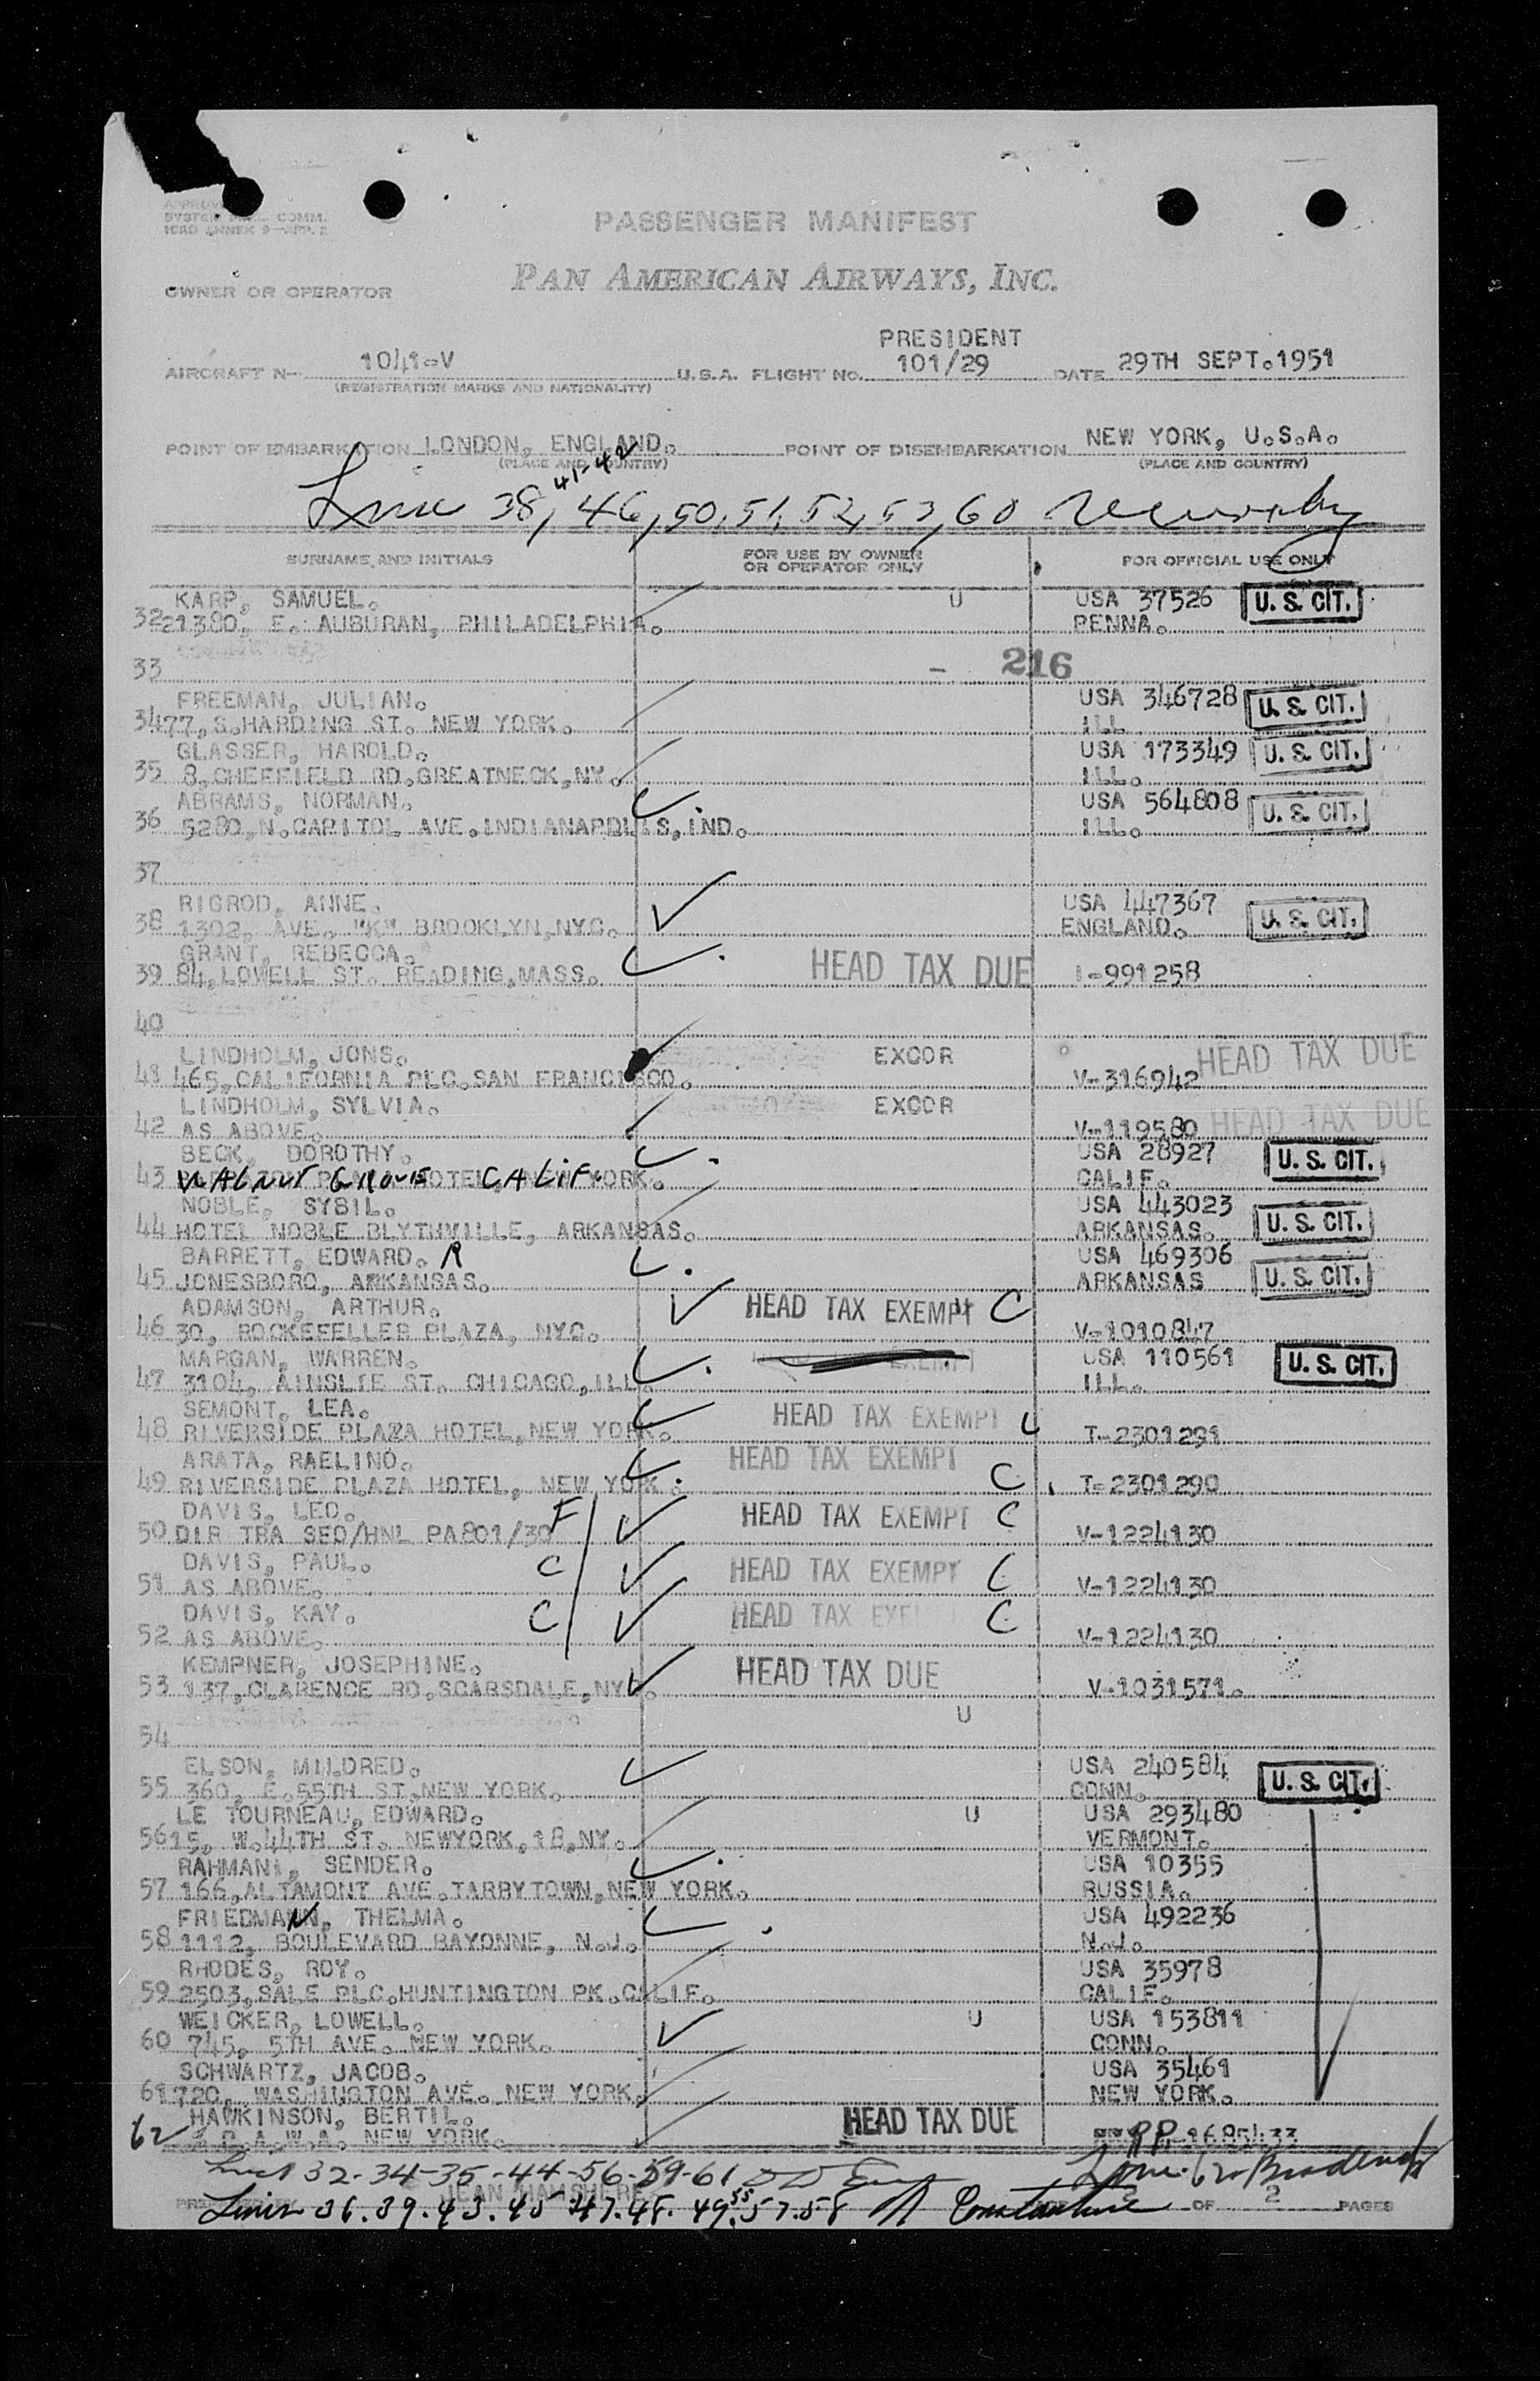 APPROV
SYSTEM COMM.
ICAO ANNEX 9-APP. 2
PASSENGER MANIFEST
OWNER OR OPERATOR
PAN AMERICAN AIRWAYS, INC.
PRESIDENT
AIRCRAFT N- 1041-V U.S.A. FLIGHT NO. 101/29 DATE 29TH SEPT.1951
(REGISTRATION MARKS AND NATIONALITY)
POINT OF EMBARKATION LONDON, ENGLAND. POINT OF DISEMBARKATION NEW YORK, U.S.A.
(PLACE AND COUNTRY) (PLACE AND COUNTRY)
41-42
Line 38, 46, 50, 51, 52, 53, 60
SURNAME AND INITIALS FOR USE BY OWNER OR OPERATOR ONLY FOR OFFICIAL USE ONLY
KARP, SAMUEL. U USA 37526 U. S. CIT.
32 21380, E. AUBURAN, PHILADELPHIA. PENNA.
33 - 216
FREEMAN, JULIAN. USA 346728 U. S. CIT.
34 77, S.HARDING ST. NEW YORK. ILL
GLASSER, HAROLD. USA 173349 U. S. CIT.
35 8,CHEFFIELD RD,GREATNECK,NY. ILL.
ABRAMS, NORMAN. USA 564808 U. S. CIT.
36 5280,N.CAPITOL AVE.INDIANAPOLIS,IND. ILL.
37
RIGROD, ANNE. USA 447367 U. S. CIT.
38 1302, AVE. "K" BROOKLYN,NYC. ENGLAND.
GRANT, REBECCA. HEAD TAX DUE
39 84,LOWELL ST. READING,MASS. I-991258
40
LINDHOLM, JONS. EXCOR HEAD TAX DUE
41 465,CALIFORNIA PLC.SAN FRANCISCO. V-316942
LINDHOLM, SYLVIA. EXCOR HEAD TAX DUE
42 AS ABOVE. V-119580
BECK, DOROTHY. USA 28927 U. S. CIT.
43 WALNUT GROVE CALIF. CALIF.
NOBLE, SYBIL. USA 443023 U. S. CIT.
44 HOTEL NOBLE BLYTHVILLE, ARKANSAS. ARKANSAS.
BARRETT, EDWARD. R USA 469306 U. S. CIT.
45 JONESBORO, ARKANSAS. ARKANSAS
ADAMSON, ARTHUR. HEAD TAX EXEMPT C
46 30, ROCKEFELLER PLAZA, NYC. V-1010847
MARGAN, WARREN. USA 110561 U. S. CIT.
47 3104, AINSLIE ST. CHICAGO,ILL. ILL.
SEMONT, LEA. HEAD TAX EXEMPT C
48 RIVERSIDE PLAZA HOTEL,NEW YORK. T-2301291
ARATA, RAELINO. HEAD TAX EXEMPT C
49 RIVERSIDE PLAZA HOTEL, NEW YORK. T-2301290
DAVIS, LEO. F HEAD TAX EXEMPT C
50 DIR TRA SEO/HNL PA801/30 V-1224130
DAVIS, PAUL. C HEAD TAX EXEMPT C
51 AS ABOVE. V-1224130
DAVIS, KAY. C HEAD TAX EXEMPT C
52 AS ABOVE. V-1224130
KEMPNER, JOSEPHINE. HEAD TAX DUE
53 137,CLARENCE RD.SCARSDALE,NYC. V-1031571.
54 U
ELSON, MILDRED. USA 240584 U. S. CIT.
55 360, E.55TH ST.NEW YORK. CONN.
LE TOURNEAU, EDWARD. U USA 293480
56 15, W.44TH ST. NEWYORK,18,NY. VERMONT.
RAHMANI, SENDER. USA 10355
57 166,ALTAMONT AVE.TARRYTOWN,NEW YORK. RUSSIA.
FRIEDMANN, THELMA. USA 492236
58 1112, BOULEVARD BAYONNE, N.J. N.J.
RHODES, ROY. USA 35978
59 2503,SALE PLC.HUNTINGTON PK.CALIF. CALIF.
WEICKER, LOWELL. U USA 153811
60 745, 5TH AVE. NEW YORK. CONN.
SCHWARTZ, JACOB. USA 35461
61 720, WASHINGTON AVE. NEW YORK. NEW YORK.
HAWKINSON, BERTIL. HEAD TAX DUE
62 NEW YORK. PP-1685433
Lines 32-34-35-44-56-59-61
Lines 36.39.43.45 47.48.49.55.57.58
2 OF 2 PAGES